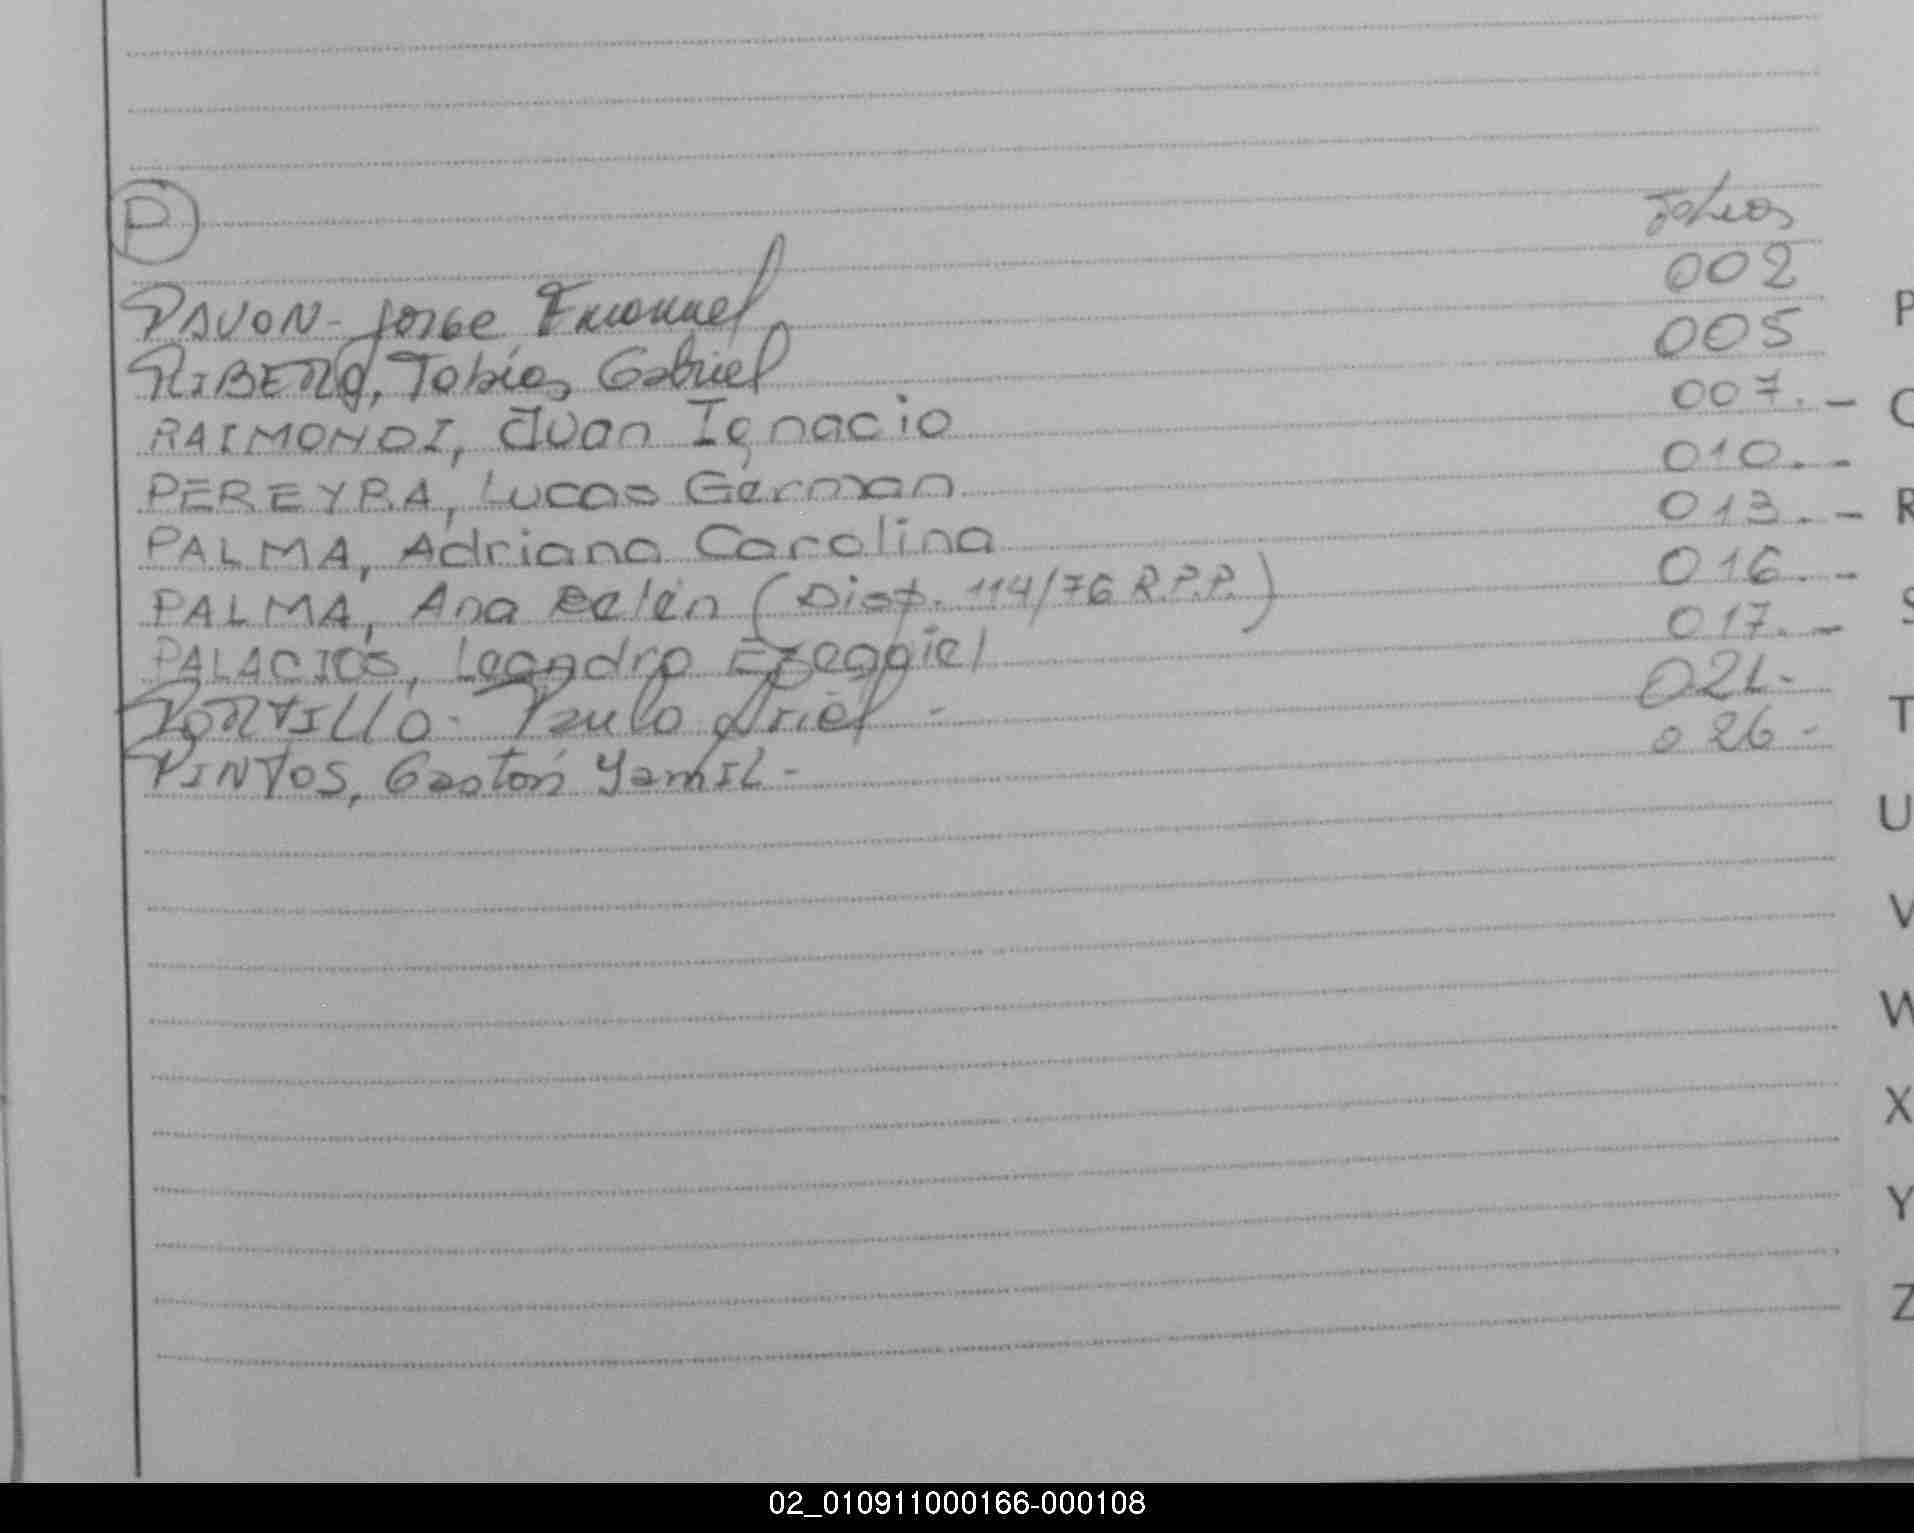 P
Folios
PAVON - Jorge Emanuel 002
RIBERO, Tobías Gabriel 005
RAIMONDI, Juan Ignacio 007.-
PEREYRA, Lucas Germán 010.-
PALMA, Adriana Carolina 013.-
PALMA, Ana Belén (Disp. 114/76 R.P.P.) 016.-
PALACIOS, Leandro Ezeqqiel 017.-
PORTILLO - Paulo Ariel - 021-
PINTOS, Gastón Yamil - 026-
P
Q
R
S
T
U
V
W
X
Y
Z
02_010911000166-000108